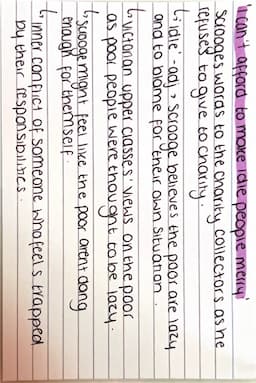 'I can't afford to make idle people merry'
Scrooges words to the charity collectors as he
refuses to give to charity.
↳ 'idle' - adj → Scrooge believes the poor are lazy
and to blame for their own situation.
↳ Victorian upper classes' views on the poor
as poor people were thought to be lazy.
↳ Scrooge might feel like the poor arent doing
enough for themself.
↳ inner conflict of someone who feels trapped
by their responsibilities.